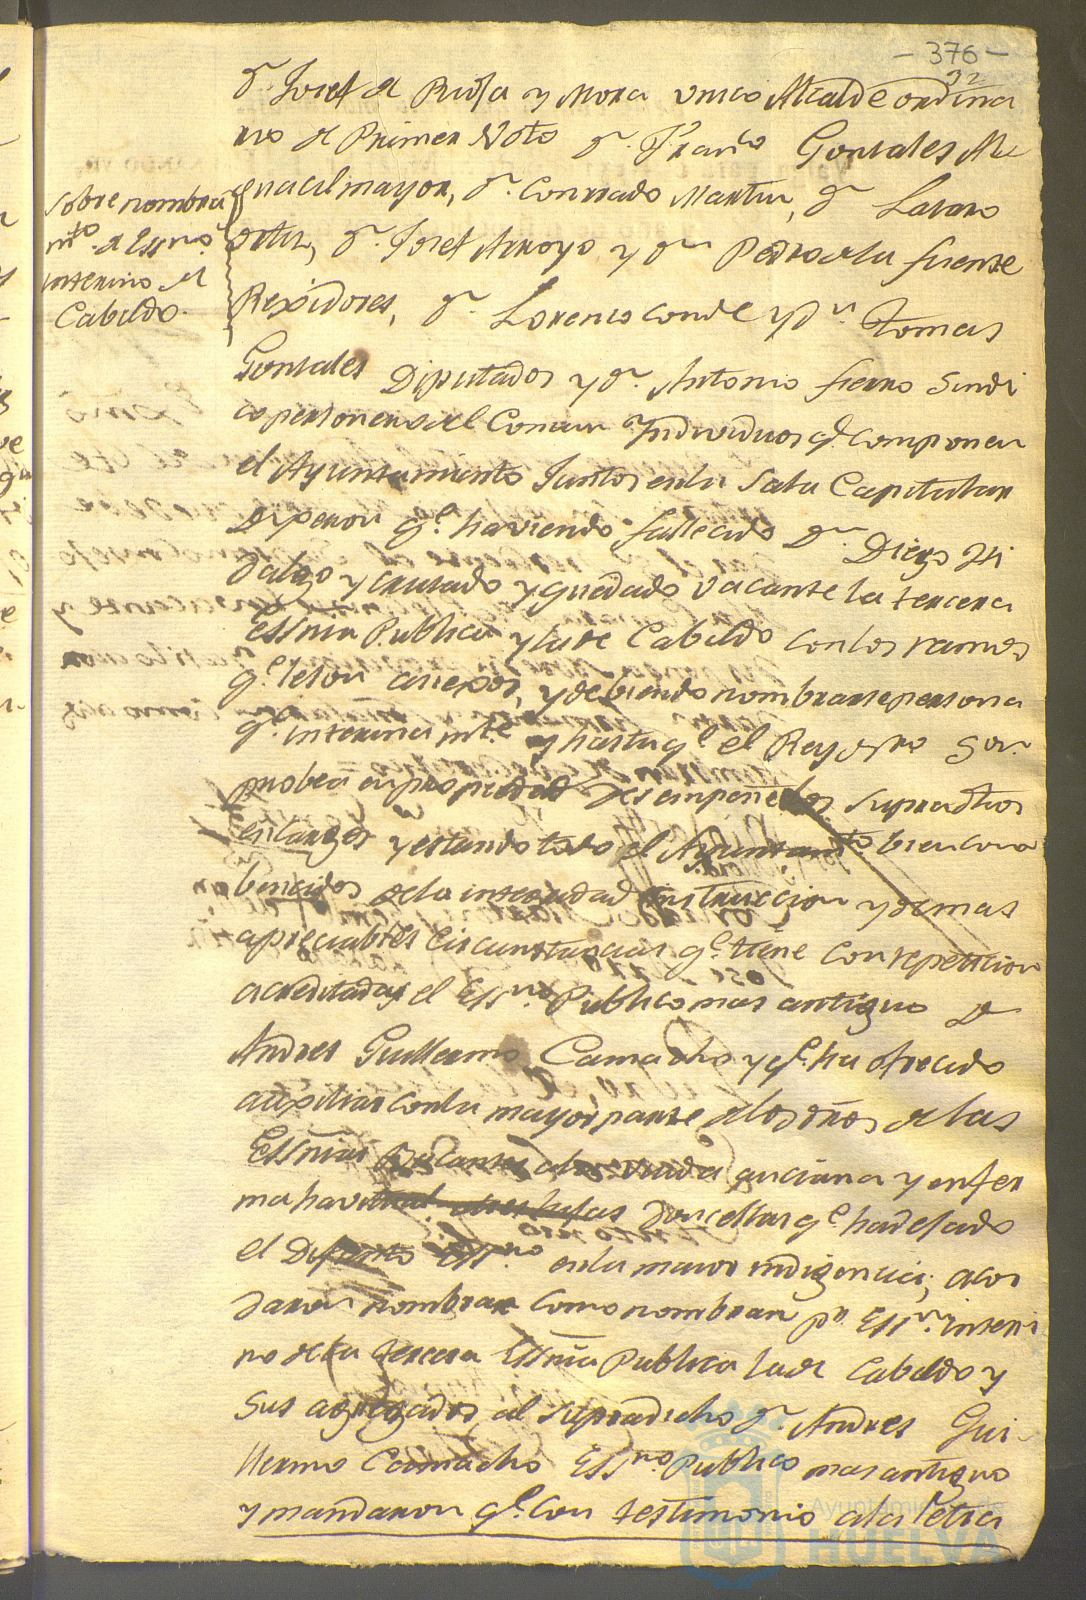 - 376 -
92
Dn. Josef de Rioja y Mora unico Alcalde ordina
rio de Primer Voto Dn. Franco Gonzales Al
guacil mayor, Dn. Conrrado Martin, Dn Lazaro
ortiz, Dn. Josef Arroyo y Dn Pedro de la fuente
Rexidores, Dn. Lorenzo Conde y Dn Tomas
Gonzales Diputados y Dn. Antonio fierro Sindi
co personero del Comun Individuos qe componen
el Ayuntamiento Juntos en la Sala Capitular
Dijeron qe. haviendo fallecido Dn. Diego Hi
dalgo y cruzado y quedado vacante la tercera
Essnia Publica y la de Cabildo con los ramos
qe. le son anexos, y debiendo nombrarse persona
qe. interinamte. y hasta qe el Rey nstro Sor.
probea en propiedad desempeñe los supradhos
encargos y estando todo el Ayuntamto bien con
bencidos de la integridad instruccion y demas
apreciables circunstancias qe. tiene con repeticion
acreditadas el Essno Publico mas antiguo Dn
Andres Guillermo Camacho y qe. ha ofrecido
auxiliar con la mayor parte de los dros de las
Essnias Bacantes a la viuda anciana y enfer
ma havitual tres hijas doncellas qe. ha dejado
el Difunto Essno en la maior indigencia, acor
daron nombrar como nombran pr. Essno. interi
no de la tercera Essnia Publica la de Cabildo y
sus agregados al supradicho Dn. Andres Gui
llermo Camacho Essno. Publico mas antiguo
y mandaron qe. con testimonio a la letra
sobre nombra
mto. de Essno
interino de
Cabildo.
Ayuntamiento de
HUELVA